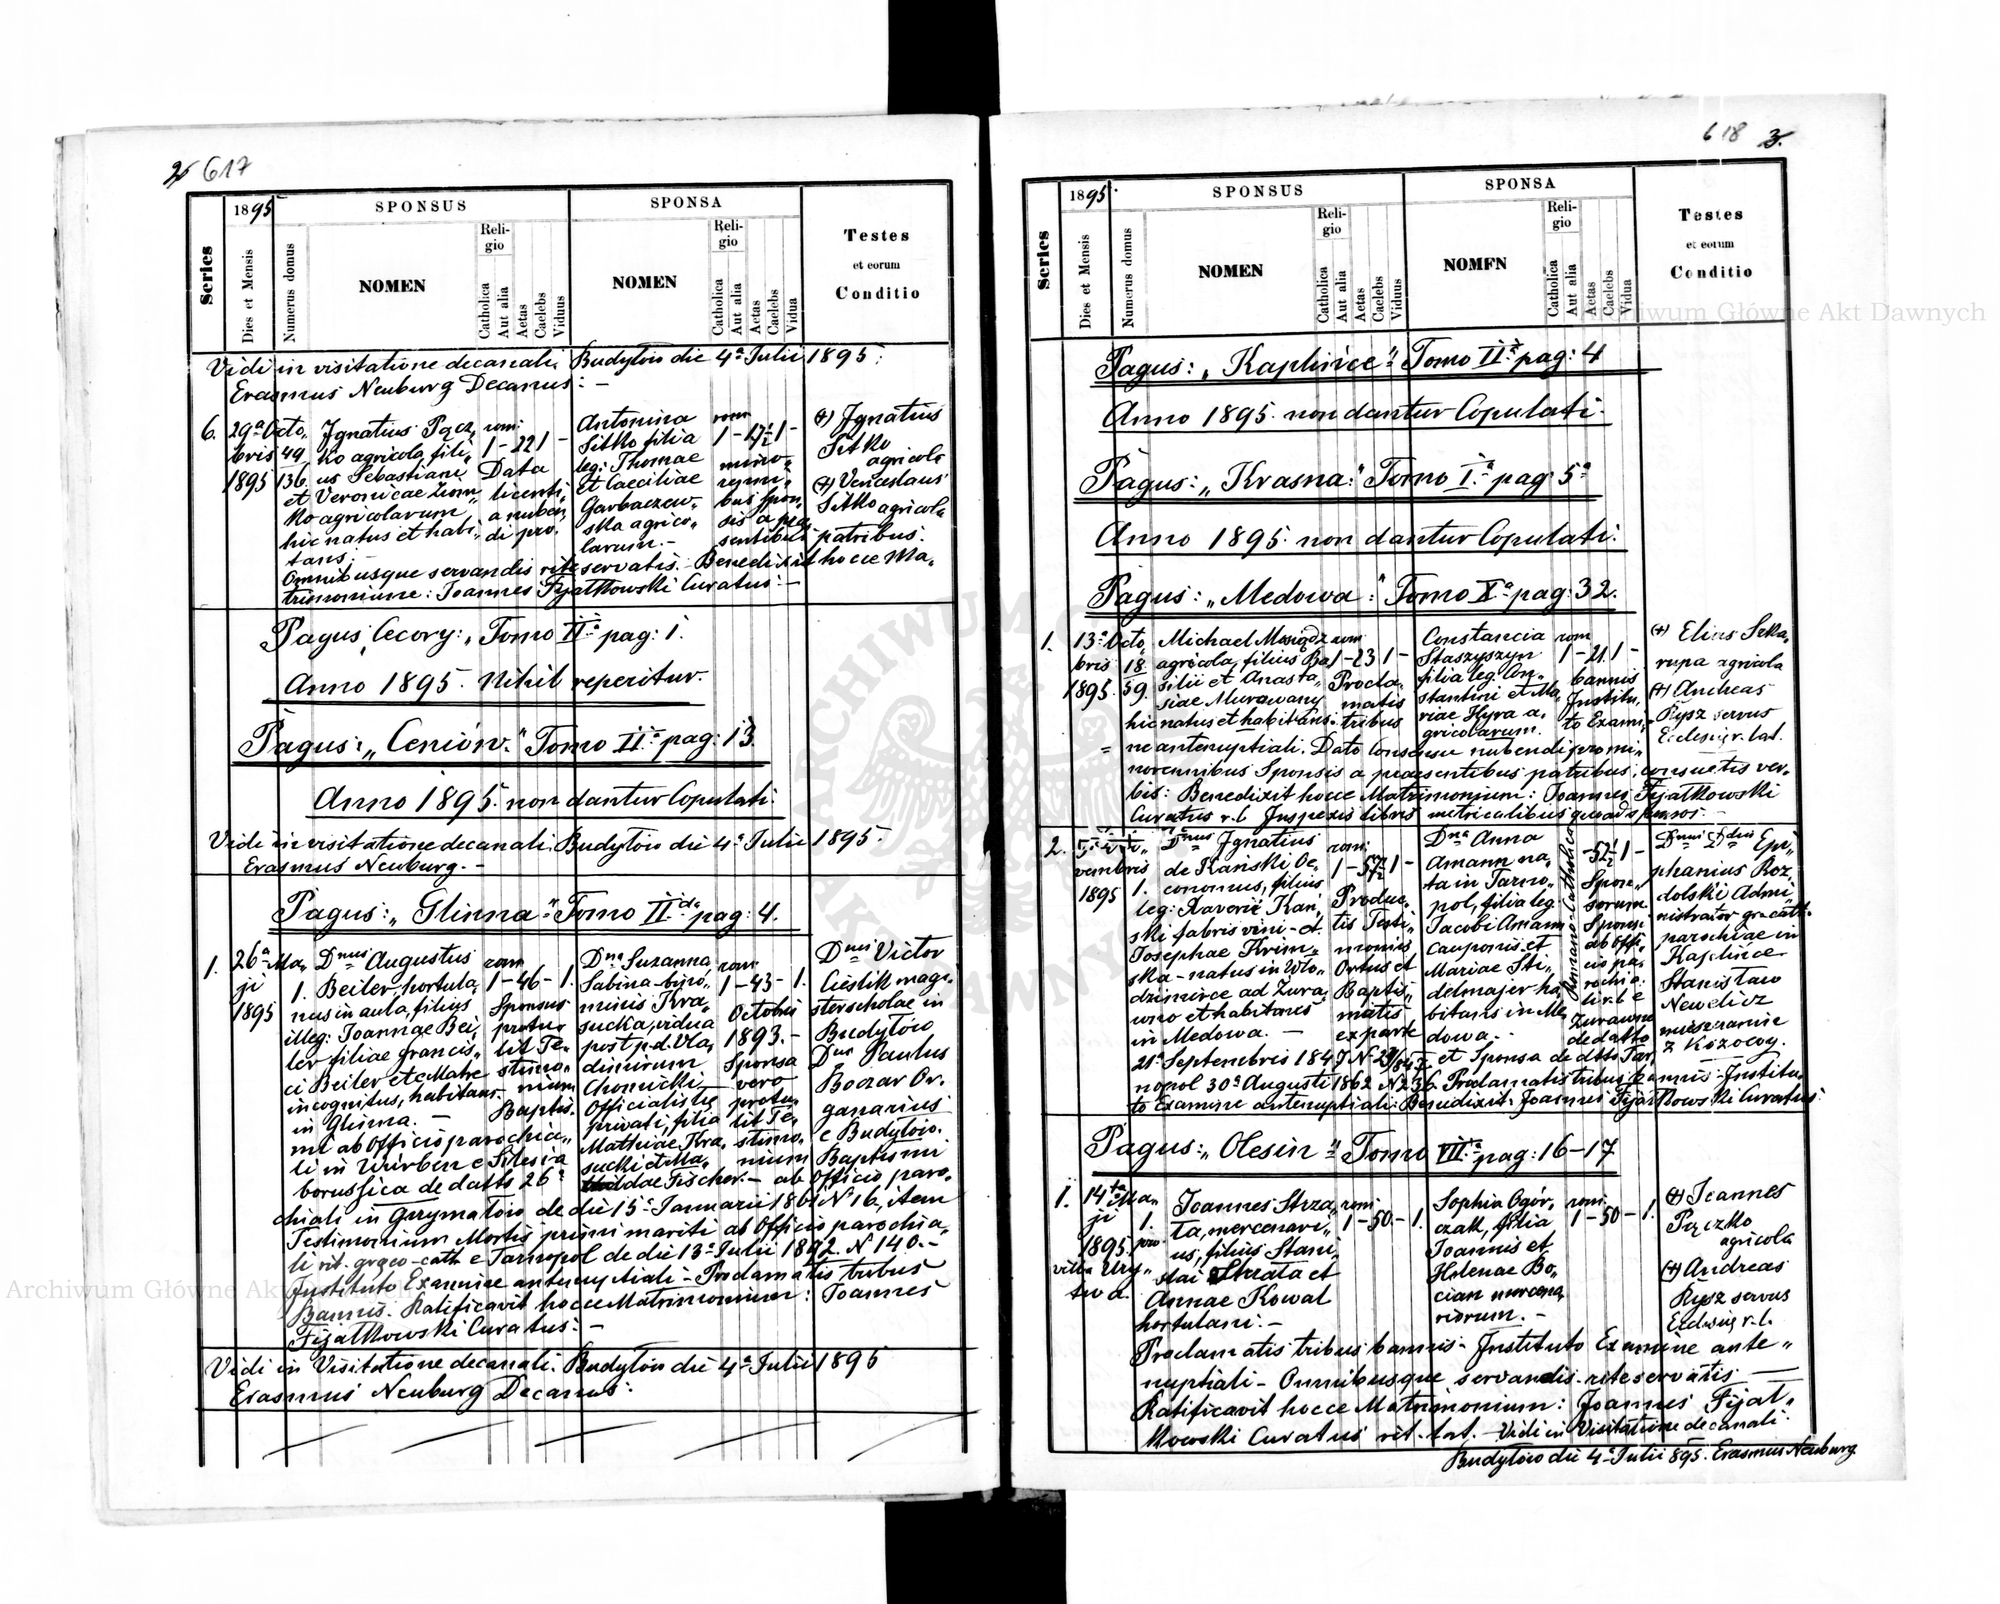 2 617
Series
1895
Dies et Mensis
Numerus domus
SPONSUS
NOMEN
Religio
Catholica
Aut alia
Aetas
Caelebs
Viduus
SPONSA
NOMEN
Religio
Catholica
Aut alia
Aetas
Caelebs
Vidua
Testes
et eorum
Conditio
Vidi in visitatione decanali. Budyłów die 4ª Julii 1895.
Erasmus Neuburg Decanus: –
6. 29ª Octobris 1895
49
136.
Ignatius Pączko agricola, filius Sebastiani
et Veronicae
agricolarum,
hic natus et habitans. –
rom:
1 – 22 1 –
Data licentia nubendi pro
Antonina
Sitko filia
leg: Thomae
et Caeciliae
Garbaczewska agricolarum. –
rom
1 – 17½ 1 –
minorennibus sponsis a praesentibus patribus.
(+) Ignatius
Sitko
agricola
(+) Venceslaus
Sitko agricola
Omnibusque servandis rite servatis. – Benedixit hocce Matrimonium: Joannes Fijałkowski Curatus: –
Pagus: Cecory: „Tomo IIª pag: 1.
Anno 1895. Nihil reperitur.
Pagus: „Ceniów." Tomo IIª pag: 13.
Anno 1895. non dantur Copulati.
Vidi in visitatione decanali Budyłów die 4ª Julii 1895.
Erasmus Neuburg. –
Pagus: „Glinna" Tomo IIdo pag: 4.
1. 26ª Maji 1895
1.
Dnus Augustus
Beiler, hortulanus in aula, filius
illeg: Joannae Beiler filiae Francisci Beiler et e Matre
incognitus, habitans
in Glinna. –
rom
1 – 46 – 1.
Sponsus
protulit Testimonium
Baptismi ab Officio parochiali in Würben e Silesia
borussica de datto 26ª
Dna Suzanna
Sabina binominis Krasucka, vidua
post p.d. Vladimirum
Chomicki –
Officialistę
privati, filia
Mathiae Krasucki et Mathildae Fischer. –
rom
1 – 43 – 1.
Octobris
1893. –
Sponsa
vero
protulit Testimonium
Baptismi
ab Officio parochiali in Grzymałów de die 15ª Januarii 1861 N 16, item
Testimonium Mortis primi mariti ab Officio parochiali rit. graeco-cath e Tarnopol de die 13ª Julii 1892. N 140. –
Dnus Victor
Cieślik magister scholae in
Budyłów
Dnus Paulus
Boczar Organarius
e Budyłów.
Instituto Examine antenuptiali – Proclamatis tribus
Bannis. Ratificavit hocce Matrimonium: Joannes
Fijałkowski Curatus: –
Vidi in Visitatione decanali. Budyłów die 4ª Julii 1895
Erasmus Neuburg Decanus:
618 3.
Series
1895.
Dies et Mensis
Numerus domus
SPONSUS
NOMEN
Religio
Catholica
Aut alia
Aetas
Caelebs
Viduus
SPONSA
NOMEN
Religio
Catholica
Aut alia
Aetas
Caelebs
Vidua
Testes
et eorum
Conditio
Pagus: „Kaplińce" Tomo IIª pag: 4
Anno 1895. non dantur Copulati.
Pagus: „Krasna:" Tomo Iª pag 5ª
Anno 1895. non dantur Copulati.
Pagus: „Medowa:" Tomo Xª pag: 32.
1. 13ª Octobris 1895.
18
59.
Michael
agricola, filius Basilii et Anastasiae Murawany
hic natus et habitans.
rom
1 – 23 1 –
Proclamatis
tribus
Constancia
Staszyszyn
filia leg. Constantini et Mariae Hyra agricolarum.
rom
1 – 21. 1 –
bannis
Instituto Examine antenuptiali. Dato Consensu nubendi pro minorennibus Sponsis a praesentibus patribus, consuetis verbis: Benedixit hocce Matrimonium: Joannes Fijałkowski
Curatus r.l. Inspexis libris metricalibus quoad sponsos. –
(+) Elias Szkarupa agricola
(+) Andreas
Rysz servus
Ecclesiae r. lat.
2.
vembris
1895
1.
Dnus Ignatius
de Kański Oeconomus, filius
leg: Xaverii Kański fabris vini – et
Josephae Krimska – natus in Włodzimirce ad Żurawno et habitans
in Medowa. –
rom:
1 – 57½ 1 –
Productis Testimoniis
Ortus et
Baptismatis
ex parte
Dna Anna
Amann nata in Tarnopol, filia leg
Jacobi Amann
cauponis et
Mariae Stidelmajer habitans in Medowa. –
Romano-Catholica
– 32½ 1 –
Sponsorum
Sponsi
ab Officio parochiali r. l. e
Żurawno
de datto
21ª Septembris 1847 N et Sponsa de dtto Tarnopol 30ª Augusti 1862 N 236. Proclamatis tribus bannis – Instituto Examine antenuptiali: Benedixit: Joannes Fijałkowski Curatus:
Epiphanius Rozdolski Administrator gr. cath.
parochiae in
Kaplińce
Stanisław
Newelicz
mieszczanin
z Kozowy.
Pagus: „Olesin" Tomo VIIª pag: 16–17
1. 14ta Maji
1895.
1.
pro
Joannes Strzata, mercenarius, filius Stanislai Strzata et
Annae Kowal
hortulani. –
rom:
1 – 50. – 1.
Sophia Ogórczak, filia
Joannis et
Helenae Bocian mercenariorum. –
rom:
1 – 50 – 1.
(+) Joannes
Pączko
agricola
(+) Andreas
Rysz servus
Ecclesiae r. l.
Proclamatis tribus bannis – Instituto Examine antenuptiali – Omnibusque servandis rite servatis –
Ratificavit hocce Matrimonium: Joannes Fijałkowski Curatus rit. lat. – Vidi in Visitatione decanali.
Budyłów die 4ª Julii 895. Erasmus Neuburg
Archiwum Główne Akt Dawnych